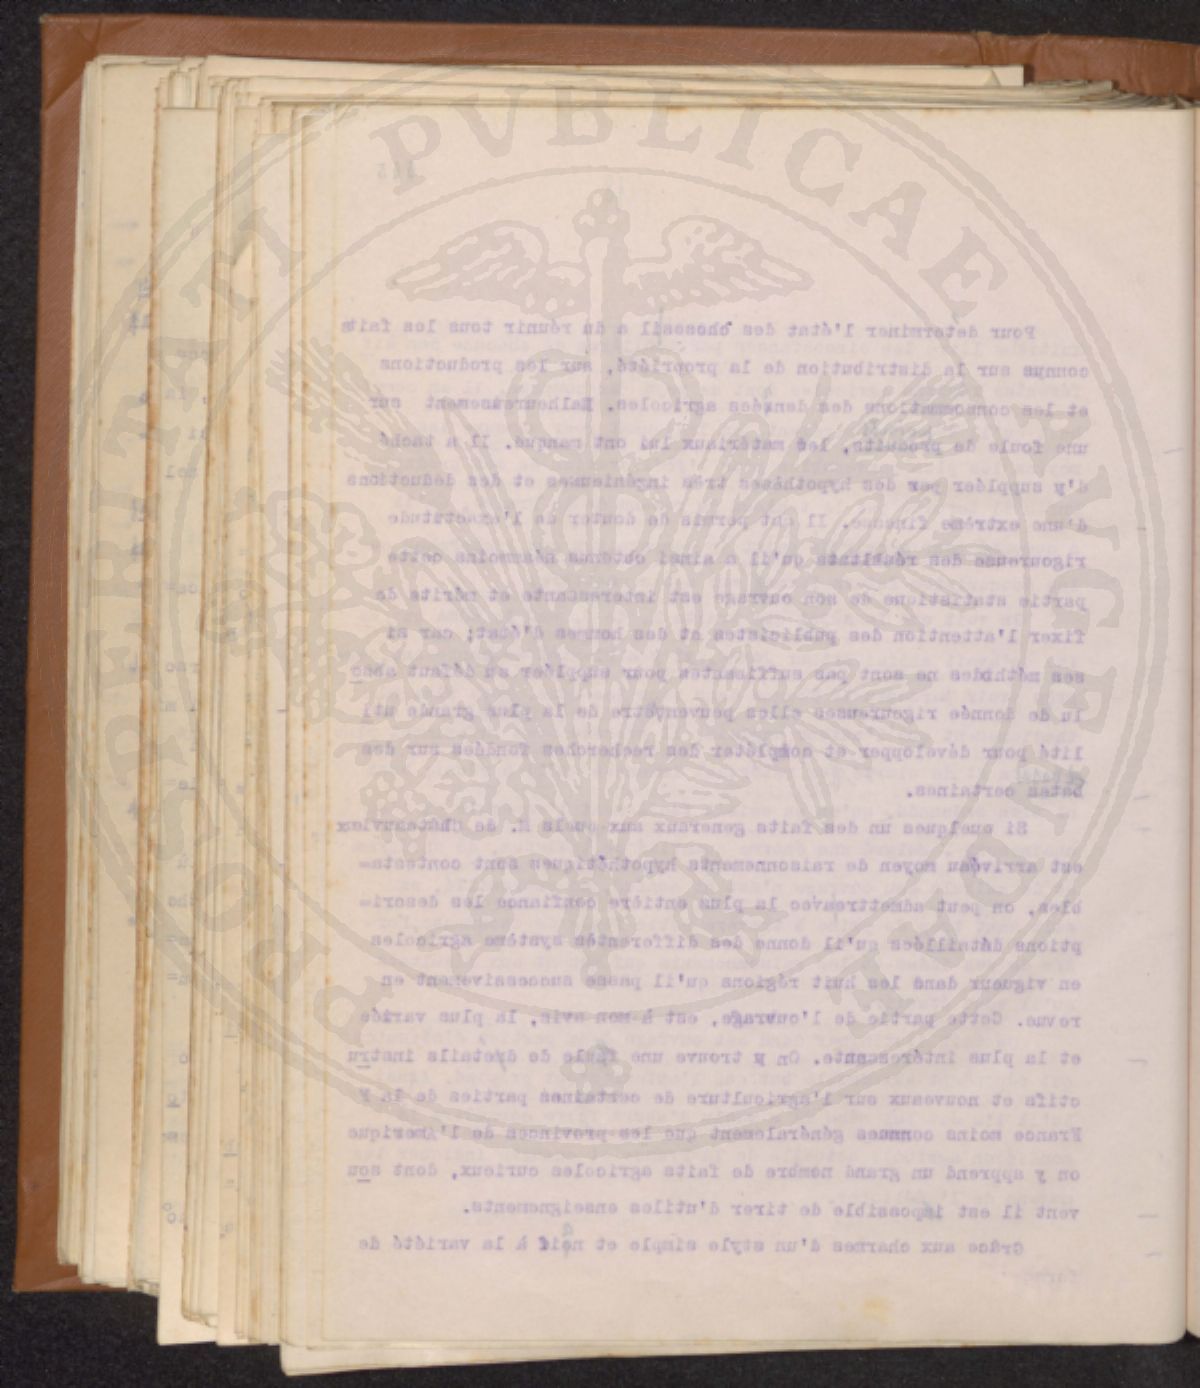 Pour determiner l'état des chosesil a du réunir tous les faits
connus sur la distribution de la propriété, sur les productions
et les consommations des denrées agricoles. Malheureusement sur
une foule de produits, les matériaux lui ont manqué. Il a taché
d'y suppléer par des hypothèses très ingénieuses et des deductions
d'une extrême finesse. Il est permis de douter de l'exactitude
rigoureuse des résultats qu'il a ainsi obtenus néanmoins cette
partie statistique de son ouvrage est interessante et mérite de
fixer l'attention des publicistes et des hommes d'état; car si
ses méthodes ne sont pas suffisantes pour suppléer au défaut abso
lu de donnée rigoureuses elles peuvenyêtre de la plus grande uti
lité pour développer et compléter des recherches fondées sur des
bases certaines.
Si quelques un des faits generaux aux quels M. de Châteauvieux
est arrivéau moyen de raisonnements hypothétiques sont contesta-
bles, on peut admettreavec la plus entière confiance les descri-
ptions détaillées qu'il donne des differentés système agricoles
en vigueur dans les huit régions qu'il passe successivement en
revue. Cette partie de l'ouvrage, est à mon avis, la plus variée
et la plus intéressante. On y trouve une foule de détails instru
ctifs et nouveaux sur l'agriculture de certaines parties de la F
France moins connues généralement que les provinces de l'Amerique
on y apprend un grand nombre de faits agricoles curieux, dont sou
vent il est impossible de tirer d'utiles enseignements.
Grâce aux charmes d'un style simple et à la variété de
PROSPERITATI PVBLICAE AVGENDAE